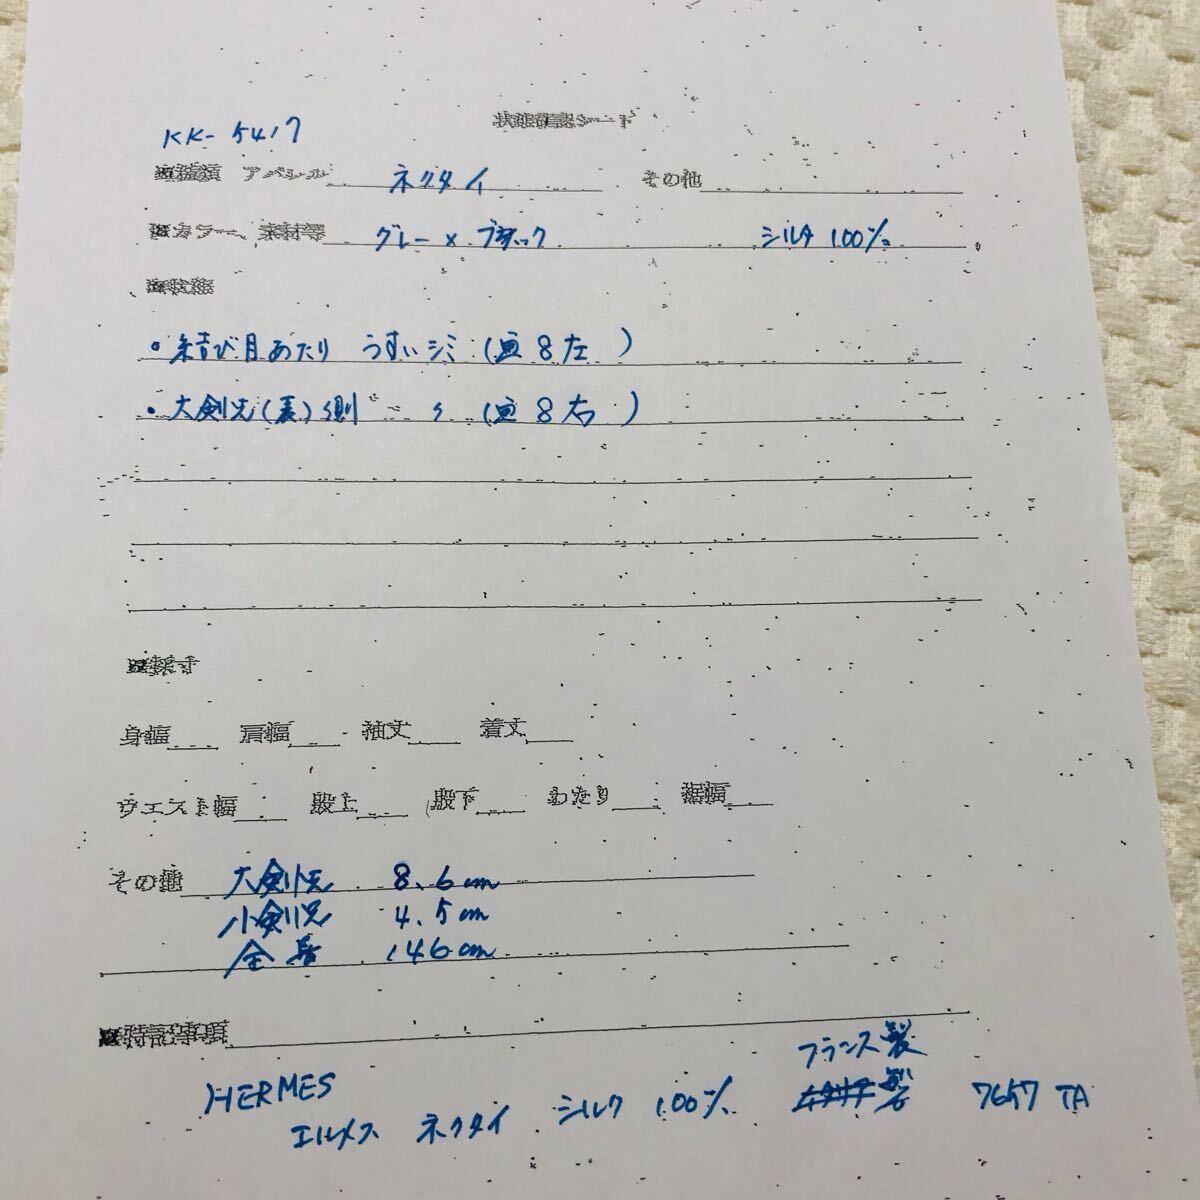 KK-5417
状態確認シート
アパレル ネクタイ その他
カラー、素材等 グレー × ブラック シルク 100%
状態
・結び目あたり うすいシミ (画8左 )
・大剣先(裏)側 〃 (画8右 )
採寸
身幅 肩幅 袖丈 着丈
ウエスト幅 股上 股下 わたり 裾幅
その他 大剣先 8.6cm
小剣先 4.5cm
全長 146cm
特記事項
フランス製
HERMES
エルメス ネクタイ シルク 100% 製 7657 TA